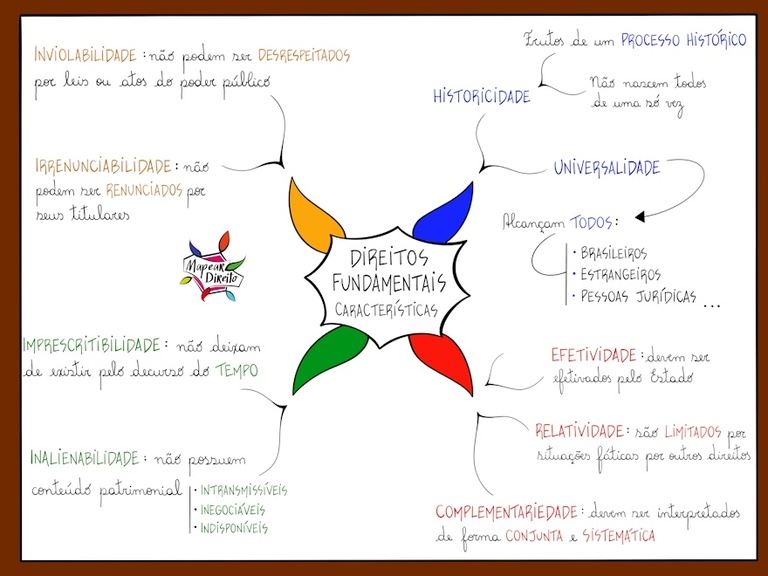 INVIOLABILIDADE : não podem ser DESRESPEITADOS
por leis ou atos do poder público
IRRENUNCIABILIDADE : não
podem ser RENUNCIADOS por
seus titulares
Mapear
Direito
IMPRESCRITIBILIDADE : não deixam
de existir pelo decurso do TEMPO
INALIENABILIDADE : não possuem
conteúdo patrimonial
• INTRANSMISSÍVEIS
• INEGOCIÁVEIS
• INDISPONÍVEIS
DIREITOS
FUNDAMENTAIS
CARACTERÍSTICAS
Frutos de um PROCESSO HISTÓRICO
HISTORICIDADE
Não nascem todos
de uma só vez
UNIVERSALIDADE
Alcançam TODOS :
• BRASILEIROS
• ESTRANGEIROS
• PESSOAS JURÍDICAS ...
EFETIVIDADE : devem ser
efetivados pelo Estado
RELATIVIDADE : são LIMITADOS por
situações fáticas por outros direitos
COMPLEMENTARIEDADE : devem ser interpretados
de forma CONJUNTA e SISTEMÁTICA